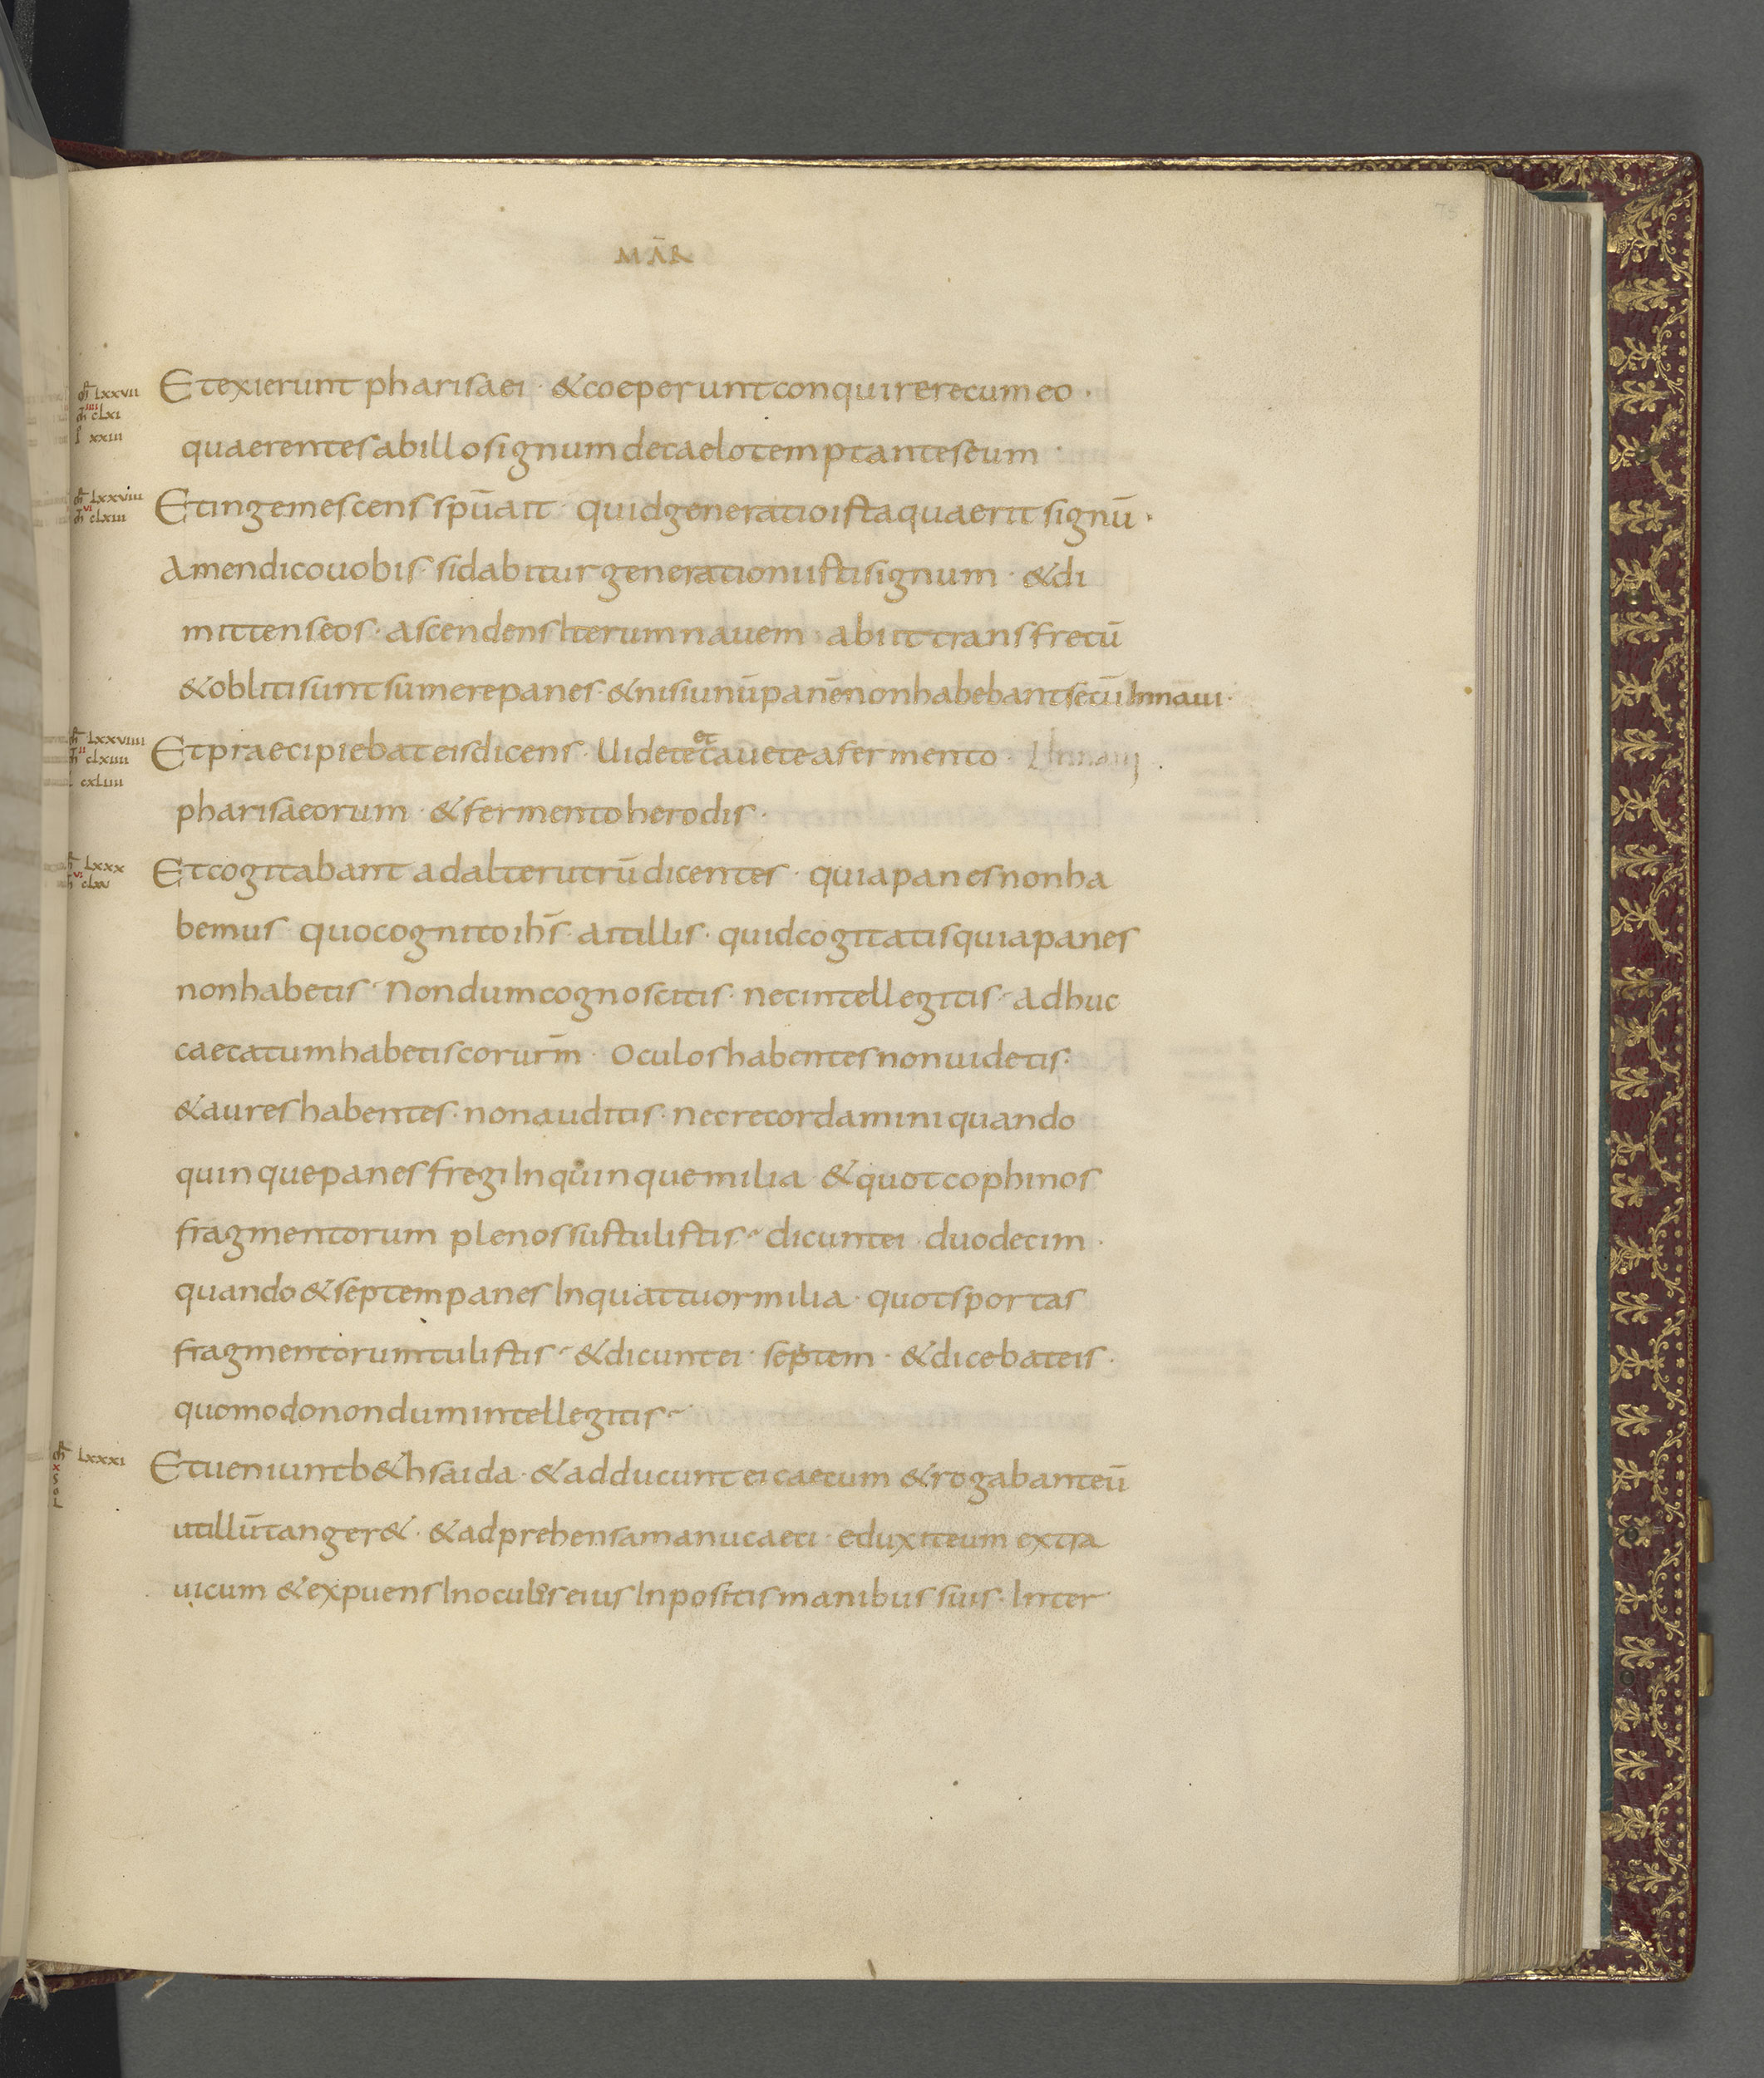 75
MĀR
mr̄ Lxxvii
iiii
mt̄ cLxi
l xxiii
Et exierunt pharisaei · & coeperunt conquirere cum eo ·
quaerentes ab illo signum de caelo temptantes eum ·
mr̄ Lxxviii
vi
mt̄ cLxiii
Et ingemescens spū ait · quid generatio ista quaerit signū ·
Amen dico uobis · si dabitur generationi isti signum · & di
mittens eos · ascendens Iterum nauem · abiit trans fretū
& obliti sunt sumere panes · & nisi unū panē non habebant secū In naui ·
mr̄ Lxxviiii
ii
mt̄ cLxiiii
l cxLiiii
Et praecipiebat eis dicens · Uidete et cauete a fermento · In naui ·
pharisaeorum · & fermento herodis ·
mr̄ Lxxx
vi
mt̄ cLxv
Et cogitabant ad alterutrū dicentes · quia panes non ha
bemus · quo cognito ihs̄ · ait illis · quid cogitatis quia panes
non habetis · Nondum cognoscitis · nec intellegitis · adhuc
caecatum habetis cor ur̄m · Oculos habentes non uidetis ·
& aures habentes · non auditis · nec recordamini quando
quinque panes fregi In quinque milia · & quot cophinos
fragmentorum plenos sustulistis · dicunt ei · duodecim ·
quando & septem panes In quattuor milia · quot sportas
fragmentorum tulistis · & dicunt ei · septem · & dicebat eis ·
quomodo nondum intellegitis ·
mr̄ Lxxxi
x
soL
Et ueniunt b&hsaida · & adducunt ei caecum & rogabant eū
ut illū tanger& · & adprehensa manu caeci · eduxit eum extra
uicum & expuens In oculos eius Inpositis manibus suis · Inter